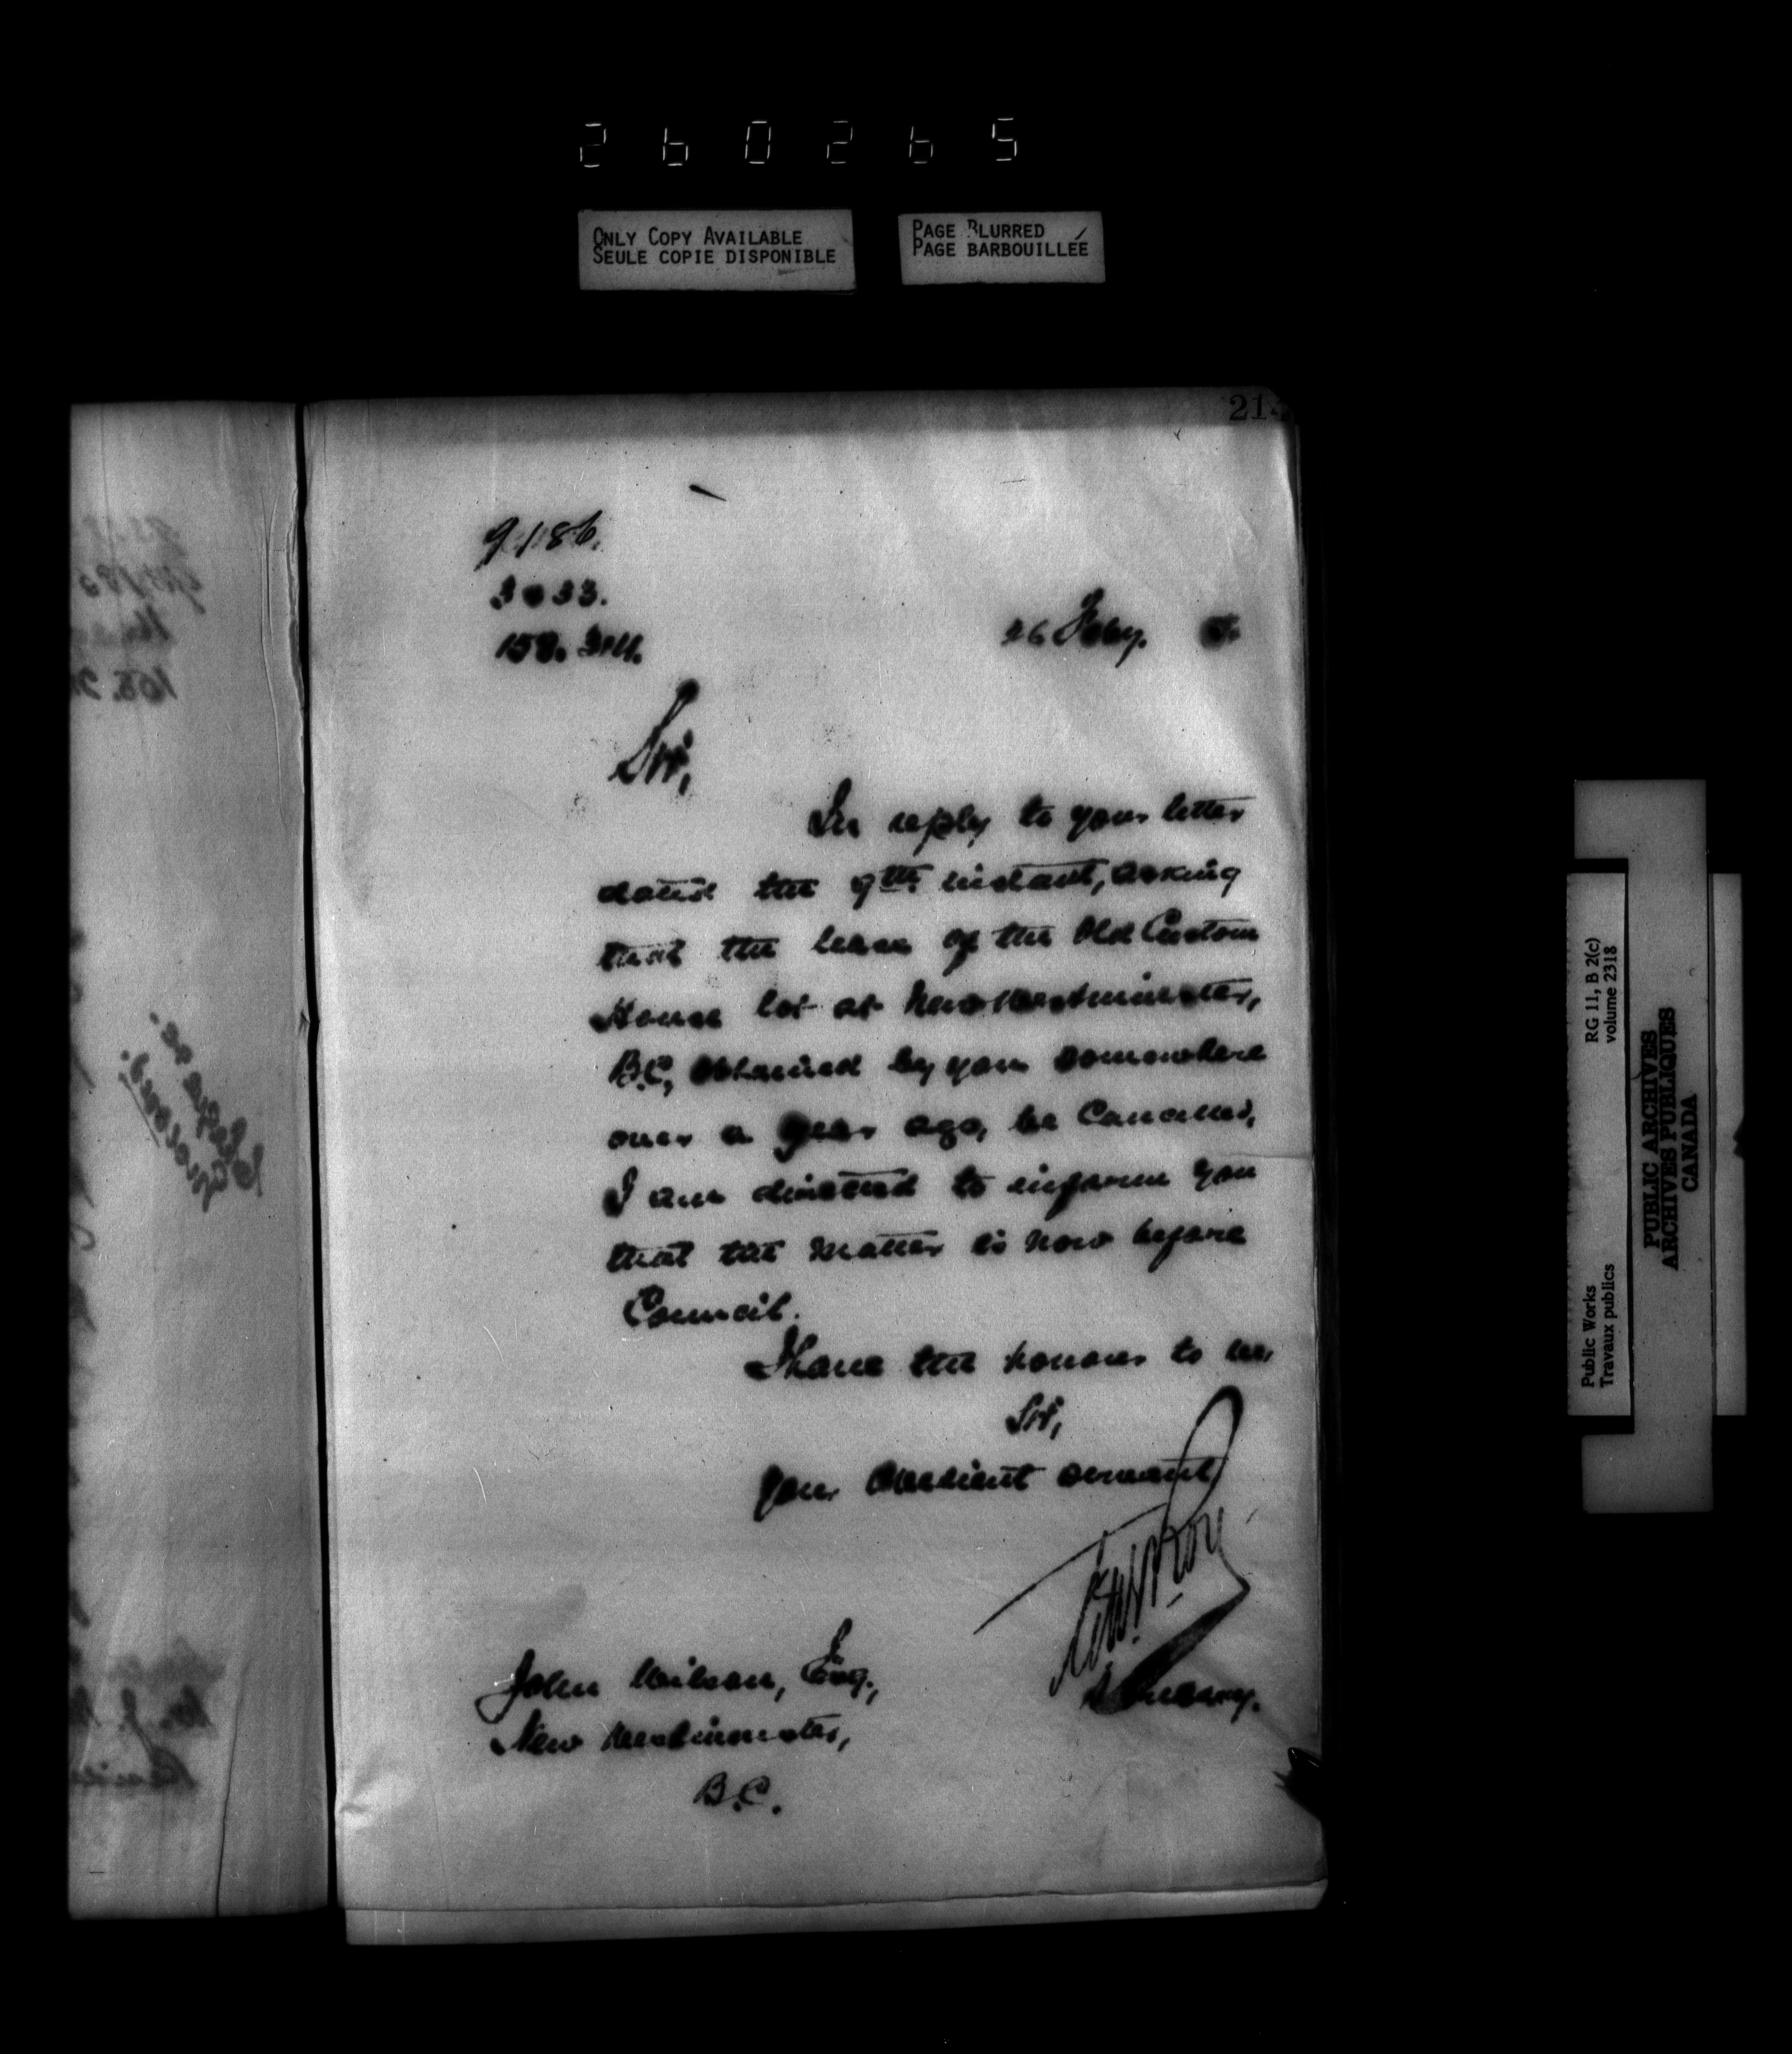 260265
ONLY COPY AVAILABLE
SEULE COPIE DISPONIBLE
PAGE BLURRED
PAGE BARBOUILLÉE
214
9186.
3033.
26 Feby.
Sir,
In reply to your letter
dated the 9th. instant, asking
that the lease of the Old Custom
House lot at New Westminster,
B.C., obtained by you somewhere
over a year ago, be cancelled,
I am directed to inform you
that the matter is now before
Council.
I have the honour to be,
Sir,
Your obedient servant,
Roy
Secretary.
John Wilson, Esq.,
New Westminster,
B.C.
RG 11, B 2(c)
volume 2318
Public Works
Travaux publics
PUBLIC ARCHIVES
ARCHIVES PUBLIQUES
CANADA